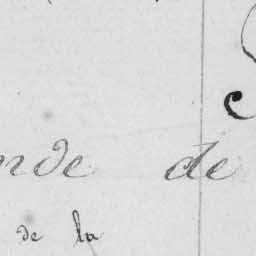 nde de
de la